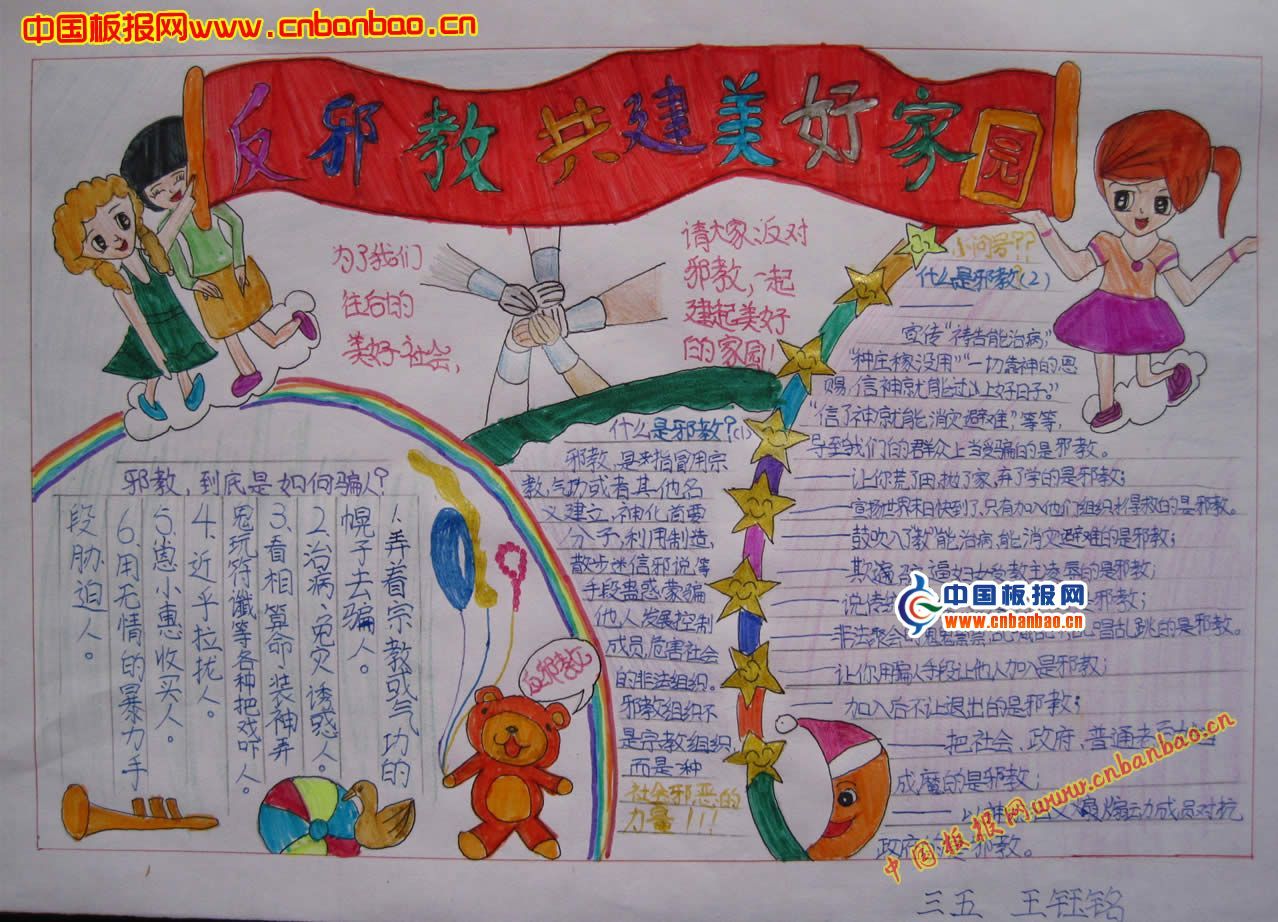 中国板报网www.cnbanbao.cn
反邪教 共建美好家园
为了我们
往后的
美好社会,
请大家反对
邪教,一起
建起美好
的家园!
小问号??
什么是邪教(2)
宣传“祷告能治病”,
“种庄稼没用”“一切靠神的恩
赐,信神就能过上好日子。”
“信了神就能消灾避难”,等等,
导至我们的群众上当受骗的是邪教。
——让你荒了田,抛了家,弃了学的是邪教;
——宣扬世界末日快到了,只有加入他们组织才是救的是邪教。
——鼓吹入了“教”能治病,能消灾避难的是邪教;
逼妇女给教主凌辱的是邪教;
——说传
邪教;
——非法聚会
唱乱跳的是邪教。
——让你用骗人手段让他人加入是邪教;
——加入后不让退出的是邪教;
——把社会、政府、普通
成魔的是邪教;
煽动成员对抗
政府的是邪教。
什么是邪教?(1)
邪教,是指冒用宗
教,气功或者其他名
义建立,神化首要
分子,利用制造,
散步迷信邪说,等
手段蛊惑,蒙骗
他人,发展,控制
成员,危害社会
的非法组织。
邪教组织不
是宗教组织
而是一种
社会邪恶的
力量!!!
邪教,到底是如何骗人?
1.弄着宗教或气功的
幌子去骗人。
2.治病、免灾,诱惑人。
3.看相、算命、装神弄
鬼玩符谶等各种把戏吓人。
4.近乎拉拢人。
5.崽小惠收买人。
6.用无情的暴力手
段胁迫人。
反邪教
中国板报网
www.cnbanbao.cn
中国板报网www.cnbanbao.cn
三五 王钰铭